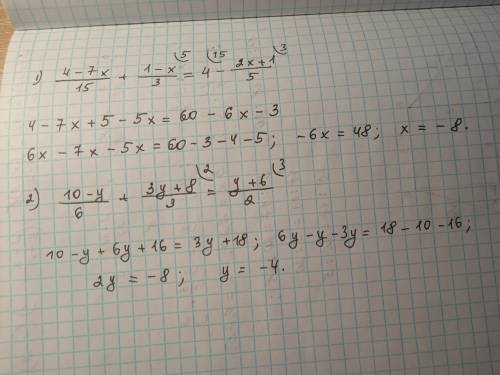 1) (4-7x)/15 + (1-x)/3 ⁵⁾ = 4 ¹⁵⁾ - (2x+1)/5 ³⁾
4 - 7x + 5 - 5x = 60 - 6x - 3
6x - 7x - 5x = 60 - 3 - 4 - 5; -6x = 48; x = -8.
2) (10-y)/6 + (3y+8)/3 ²⁾ = (y+6)/2 ³⁾
10 - y + 6y + 16 = 3y + 18; 6y - y - 3y = 18 - 10 - 16;
2y = -8; y = -4.